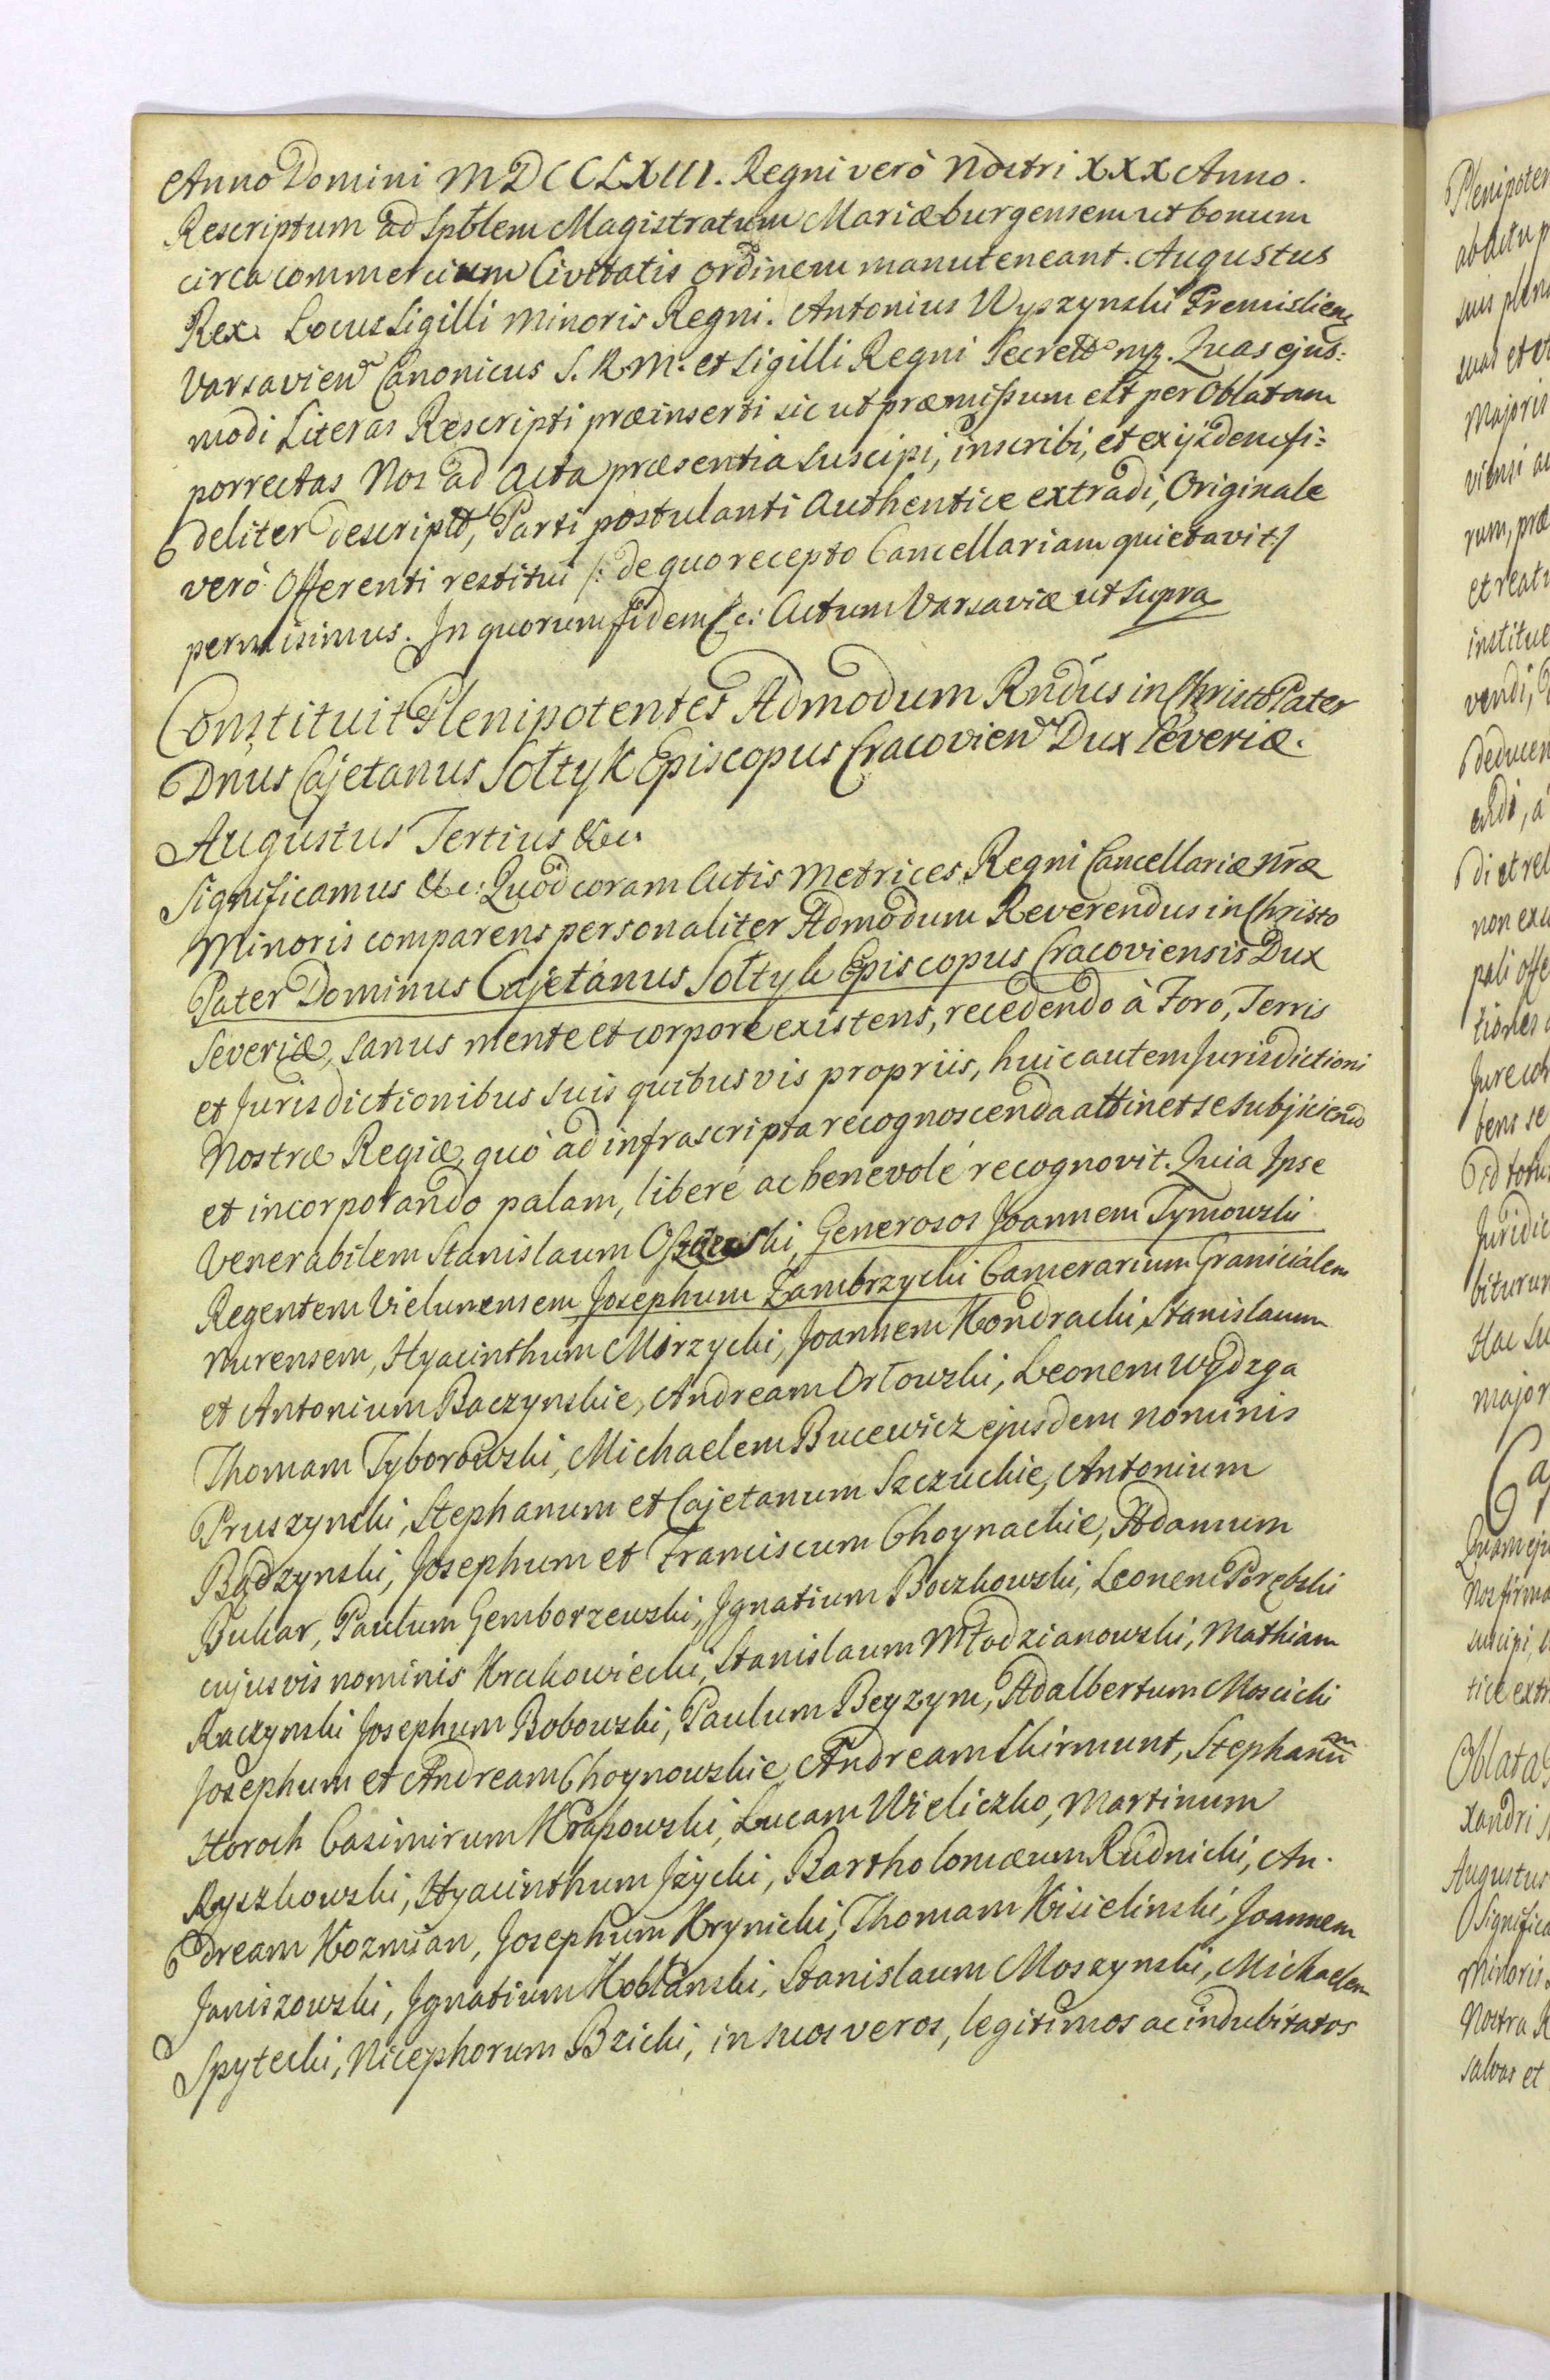 Anno Domini MDCCLXIII. Regni verò Nostri XXX Anno.
Rescriptum ad Spblem Magistratum Mariæburgensem ut bonum
circa commercium Civitatis ordinem manuteneant. Augustus
Rex. Locus Sigilli Minoris Regni. Antonius Wyszynski Premislien
Varsavien Canonicus S. R. M. et Sigilli Regni Secret. Quas ejus=
modi Literas Rescripti præinserti sic ut præmissum est per Oblatam
porrectas Nos ad Acta præsentia suscipi, inscribi, et ex ijsdem fi=
deliter descript, Parti postulanti Authentice extradi, Originale
verò Offerenti restitui /: de quo recepto Cancellariam quietavit:/
permisimus. In quorum fidem &c: Actum Varsaviæ ut supra
Constituit Plenipotentes Admodum Rndus in Christo Pater
Dnus Cajetanus Sołtyk Episcopus Cracovien Dux Severiæ.
Augustus Tertius &c.
Significamus &c: Quod coram Actis Metrices Regni Cancellariæ nræ
Minoris comparens personaliter Admodum Reverendus in Christo
Pater Dominus Cajetanus Sołtyk Episcopus Cracoviensis Dux
Severiæ, sanus mente et corpore existens, recedendo à Foro, Terris
et Jurisdictionibus suis quibusvis propriis, huic autem Jurisdictioni
Nostræ Regiæ, quò ad infrascripta recognoscenda attinet se subjiciendo
et incorporando palam, liberé ac benevolé recognovit. Quia Ipse
Venerabilem Stanislaum Generosos Joannem Tymowski
Regentem Vielunensem Josephum Zambrzycki Camerarium Granicialem
Nurensem, Hyacinthum Mirzycki, Joannem Kondracki, Stanislaum
et Antonium Baczynskie, Andream Orłowski, Leonem Wydzga
Thomam Tyborowski, Michaelem Bucewicz ejusdem nominis
Pruszynski, Stephanum et Cajetanum Szczuckie, Antonium
Bądzynski, Josephum et Franciscum Choynackie, Adamum
Bukar, Paulum Gemborzewski, Ignatium Boczkowski, Leonem Porębski
cujusvis nominis Krakowiecki, Stanislaum Młodzianowski, Mathiam
Raczynski Josephum Bobowski, Paulum Beyzym, Adalbertum Moscicki
Josephum et Andream Choynowskie, Andream Skirmunt, Stephanum
Horoch Casimirum Krajowski, Lucam Wieliczko, Martinum
Ryszkowski, Hyacinthum Jżycki, Bartholomæum Rudnicki, An.
dream Kozmian, Josephum Krynicki, Thomam Kisielinski, Joannem
Janiszowski, Ignatium Kobłanski, Stanislaum Moszynski, Michaelem
Spytecki, Nicephorum Bzicki, in suos veros, legitimos ac indubitatos